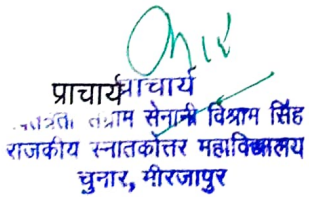 प्राचार्य प्राचार्य
संग्राम सेनानी विश्राम सिंह
राजकीय स्नातकोत्तर महाविद्यालय
चुनार, मीरजापुर